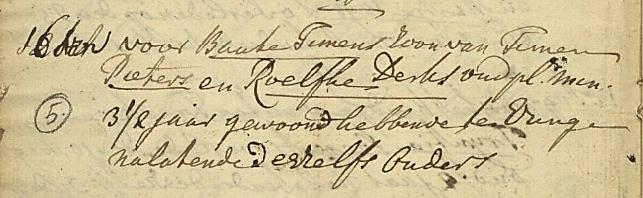 16 voor Bauke Timens Zoon van Timen
Pieters en Roelfke Derks oud pl. min.
5. 3 1/2 jaar gewoond hebbende te
nalatende deszelfs Ouders